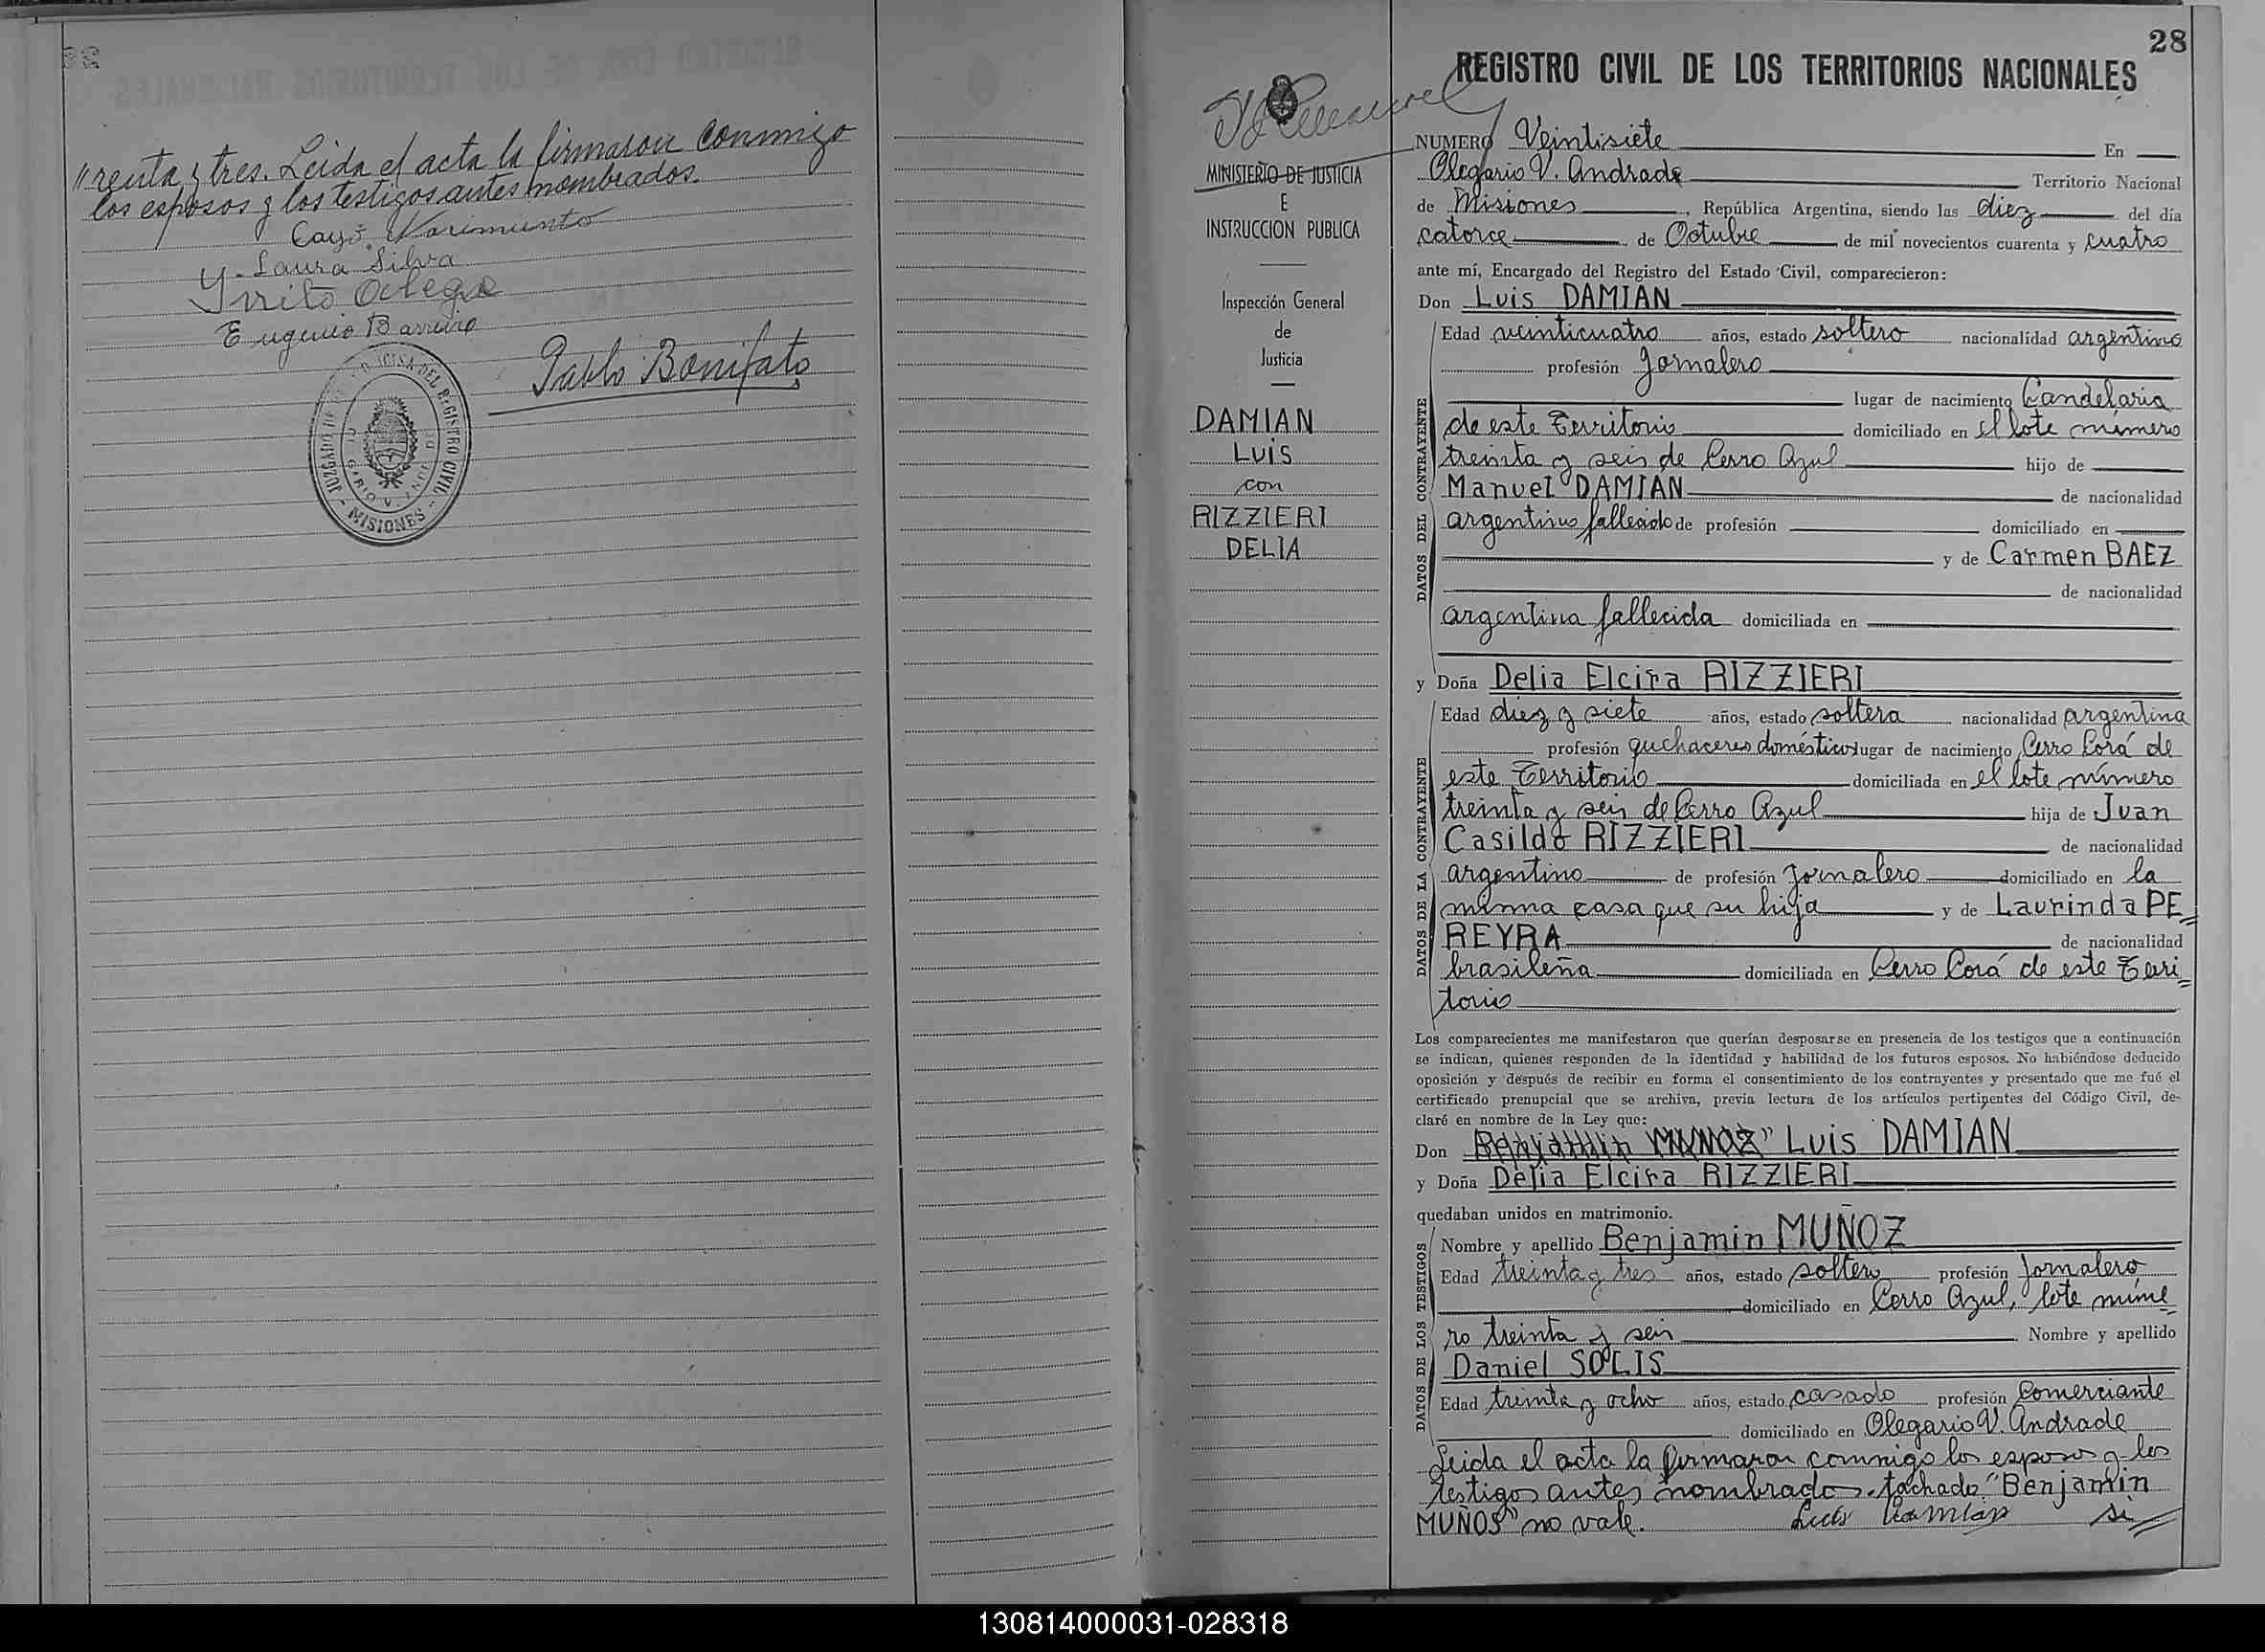 "renta y tres. Leida el acta la firmaron conmigo
los esposos y los testigos antes nombrados.
Laura Silva
Eugenio
Pablo Bonifato
JUZGADO DE DEL REGISTRO CIVIL
- MISIONES -
28
REGISTRO CIVIL DE LOS TERRITORIOS NACIONALES
MINISTERIO DE JUSTICIA
E
INSTRUCCION PUBLICA
Inspección General
de
Justicia
DAMIAN
LUIS
con
RIZZIERI
DELIA
NUMERO Veintisiete En
Olegario V. Andrade Territorio Nacional
de Misiones, República Argentina, siendo las diez del día
catorce de Octubre de mil novecientos cuarenta y cuatro
ante mí, Encargado del Registro del Estado Civil, comparecieron:
Don Luis DAMIAN
DATOS DEL CONTRAYENTE
Edad veinticuatro años, estado soltero nacionalidad argentino
profesión Jornalero
lugar de nacimiento Candelaria
de este Territorio domiciliado en el lote número
treinta y seis de Cerro Azul hijo de
Manuel DAMIAN de nacionalidad
argentino fallecido de profesión domiciliado en
y de Carmen BAEZ
de nacionalidad
argentina fallecida domiciliada en
y Doña Delia Elcira RIZZIERI
DATOS DE LA CONTRAYENTE
Edad diez y siete años, estado soltera nacionalidad argentina
profesión quehaceres domésticos lugar de nacimiento Cerro Corá de
este Territorio domiciliada en el lote número
treinta y seis de Cerro Azul hija de Juan
Casildo RIZZIERI de nacionalidad
argentino de profesión Jornalero domiciliado en la
misma casa que su hija y de Laurinda PE=
REYRA de nacionalidad
brasileña domiciliada en Cerro Corá de este Terri=
torio
Los comparecientes me manifestaron que querían desposarse en presencia de los testigos que a continuación
se indican, quienes responden de la identidad y habilidad de los futuros esposos. No habiéndose deducido
oposición y después de recibir en forma el consentimiento de los contrayentes y presentado que me fué el
certificado prenupcial que se archiva, previa lectura de los artículos pertinentes del Código Civil, de-
claré en nombre de la Ley que:
Don Benjamin MUÑOZ" Luis DAMIAN
y Doña Delia Elcira RIZZIERI
quedaban unidos en matrimonio.
DATOS DE LOS TESTIGOS
Nombre y apellido Benjamin MUÑOZ
Edad treinta y tres años, estado soltero profesión Jornalero
domiciliado en Cerro Azul, lote núme=
ro treinta y seis Nombre y apellido
Daniel SOLIS
Edad treinta y ocho años, estado casado profesión Comerciante
domiciliado en Olegario V. Andrade
Leida el acta la firmaron conmigo los esposos y los
testigos antes nombrados. tachado "Benjamin
MUÑOS" no vale. Luis Damian si=
130814000031-028318